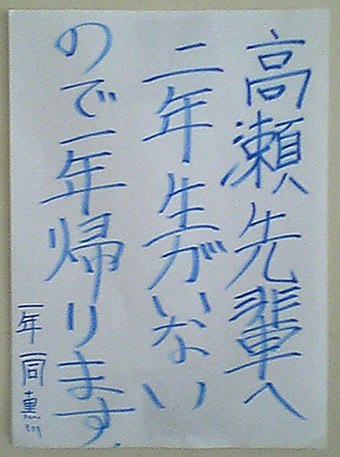 高瀬先輩へ
二年生がいない
ので一年帰ります.
一年一同